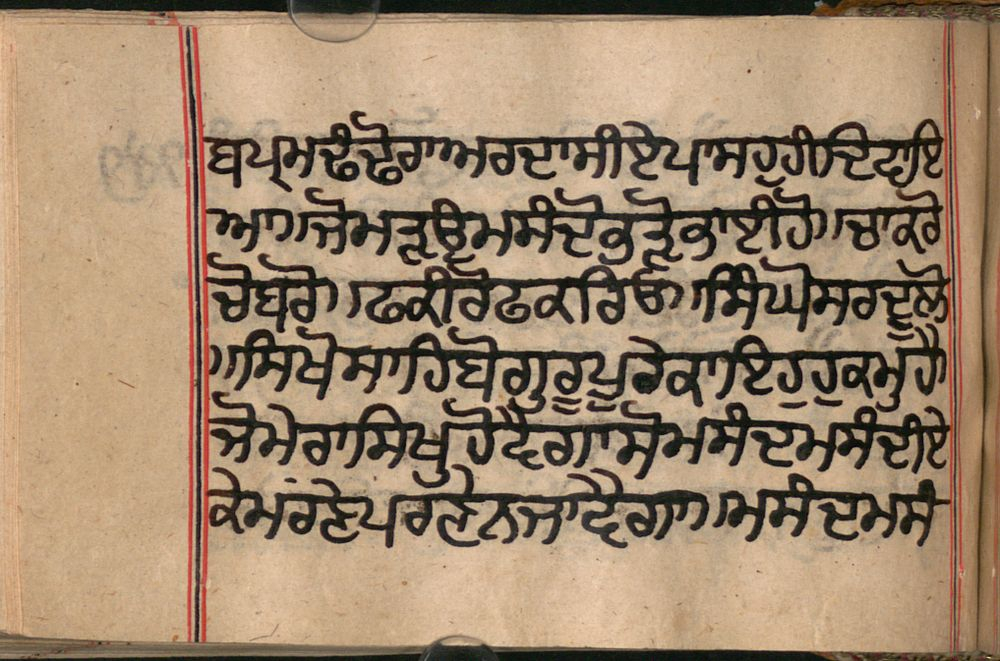 ਬਪ੍ਰਮਢੰਢੋਰਾਅਰਦਾਸੀਏਪਾਸਹੁੰਹੀਦਿਵਾਇ
ਆ॥ਜੋਮੜੂਉੂਮਸੰਦੋਭੁੜੋਭਾਈਹੋ॥ਚਾਕਰੋ
ਚੋਬਰੋ॥ਢਕੀਰੋਢਕਰਿਓ॥ਸਿੰਘੋਸਰਦੂਲੋ
॥ਸਿਖੋਸਾਹਿਬੋਗੁਰੂਪੂਰੇਕਾਇਹੁਹੁਕਮੁਹੈ
ਜੋਮੇਰਾਸਿਖੁਹੋਵੈਗਾਸੋਮਸੰਦਮਸੰਦੀਏ
ਕੇਮਰਣੇਪਰਣੇਨਜਾਵੈਗਾ॥ਮਸੰਦਮਸੰ